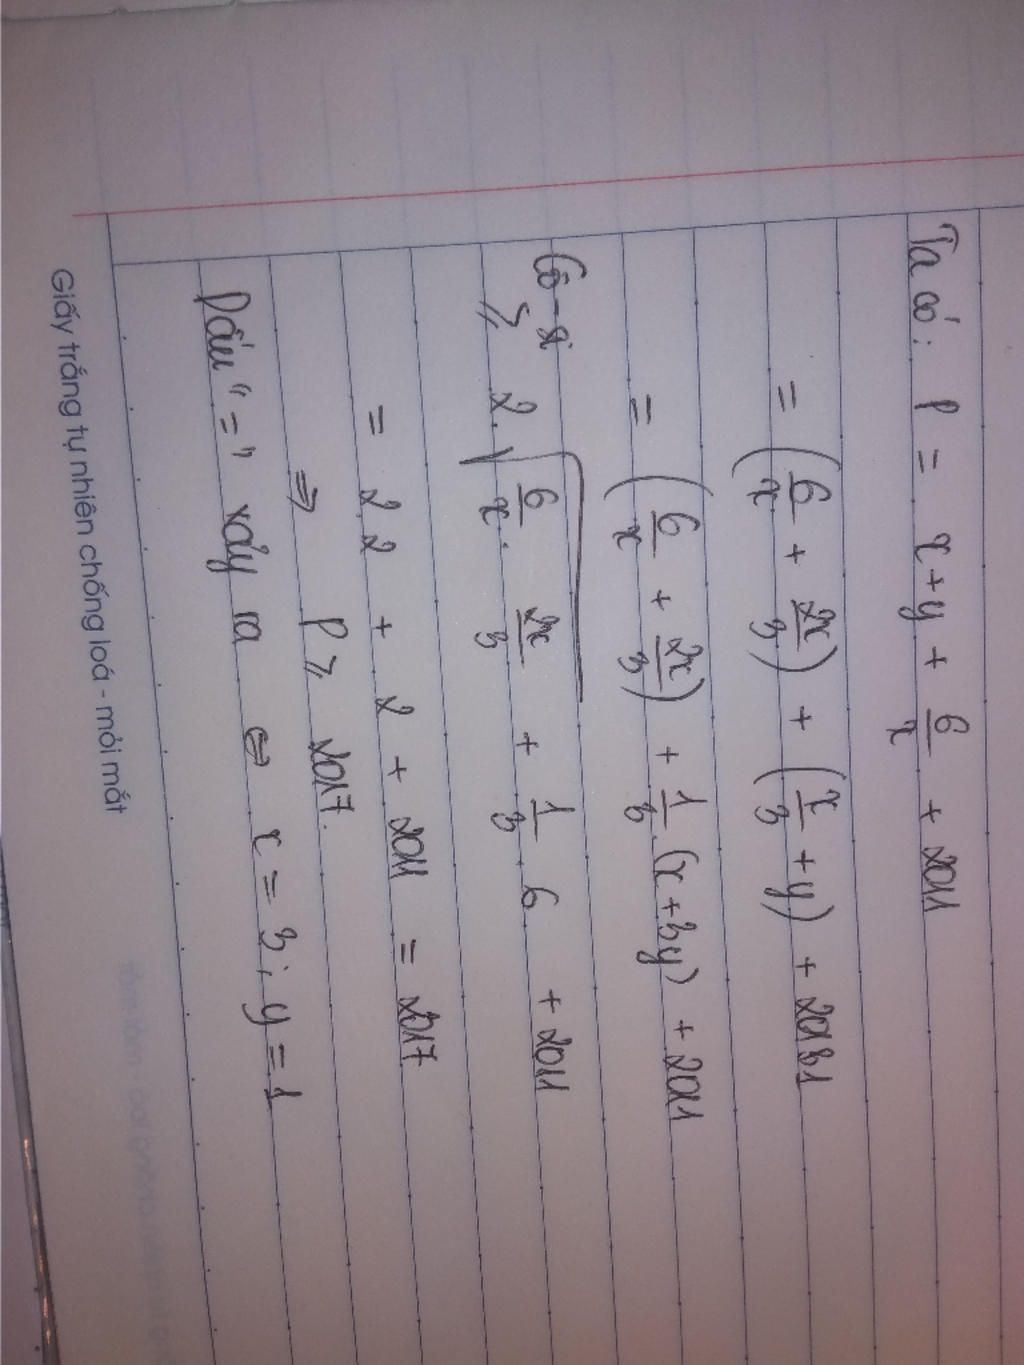 Ta có: P = x+y + 6/x + 2011
= (6/x + 2x/3) + (x/3 + y) + 2011
= (6/x + 2x/3) + 1/3 . (x+3y) + 2011
Cô-si
≥ 2.√(6/x . 2x/3) + 1/3 . 6 + 2011
= 2.2 + 2 + 2011 = 2017
⇒ P ≥ 2017.
Dấu "=" xảy ra ⇔ x = 3; y = 1
Giấy trắng tự nhiên chống loá - mỏi mắt